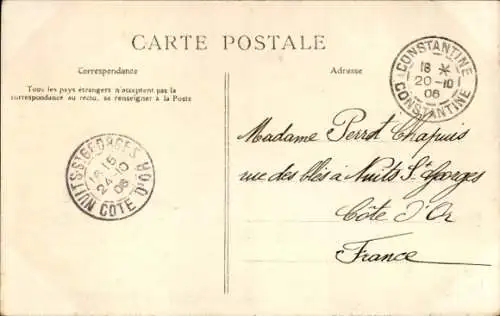 CARTE POSTALE
Correspondance
Tous les pays étrangers n'acceptent pas la
correspondance au recto, se renseigner à la Poste
Adresse
CONSTANTINE
18 *
20-10
06
CONSTANTINE
Madame Perrot Chapuis
rue des blés à Nuits St Georges
Côte d'Or
France
NUITS ST GEORGES
16 15
24-10
06
CÔTE D'OR